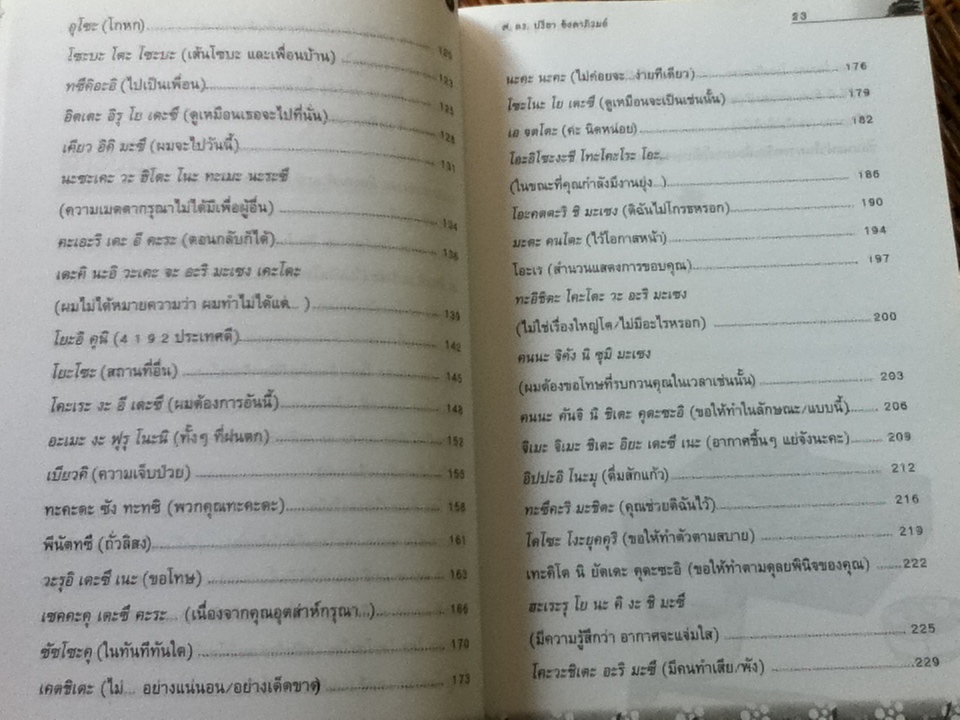 อุโซะ (โกหก)
โซะบะ โตะ โซะบะ (เส้นโซบะ และเพื่อนบ้าน) 120
ทซึคิอะอิ (ไปเป็นเพื่อน) 123
อิตเตะ อิรุ โย เดะซึ (ดูเหมือนเธอจะไปที่นั่น) 125
เคียว อิคิ มะซึ (ผมจะไปวันนี้) 128
นะซะเคะ วะ ฮิโตะ โนะ ทะเมะ นะระซึ 131
(ความเมตตากรุณาไม่ได้มีเพื่อผู้อื่น) 134
คะเอะริ เดะ อี คะระ (ตอนกลับก็ได้) 136
เดะคิ นะอิ วะเคะ จะ อะริ มะเซง เคะโดะ
(ผมไม่ได้หมายความว่า ผมทำไม่ได้แต่... ) 139
โยะอิ คุนิ (4 1 9 2 ประเทศดี) 142
โยะโซะ (สถานที่อื่น) 145
โคะเระ งะ อี เดะซึ (ผมต้องการอันนี้) 148
อะเมะ งะ ฟุรุ โนะนิ (ทั้งๆ ที่ฝนตก) 152
เบียวคิ (ความเจ็บป่วย) 155
ทะคะดะ ซัง ทะทซิ (พวกคุณทะคะดะ) 158
พีนัตทซึ (ถั่วลิสง) 161
วะรุอิ เดะซึ เนะ (ขอโทษ) 163
เซคคะคุ เดะซึ คะระ... (เนื่องจากคุณอุตส่าห์กรุณา...) 166
ซัซโซะคุ (ในทันทีทันใด) 170
เคตชิเตะ (ไม่... อย่างแน่นอน/อย่างเด็ดขาด) 173
ศ. ดร. ปรียา อิงคาภิรมย์ 23
นะคะ นะคะ (ไม่ค่อยจะ...ง่ายทีเดียว) 176
โซะโนะ โย เดะซึ (ดูเหมือนจะเป็นเช่นนั้น) 179
เอ จตโตะ (ค่ะ นิดหน่อย) 182
โอะอิโซะงะซี โทะโคะโระ โอะ
(ในขณะที่คุณกำลังมีงานยุ่ง...) 186
โอะคตตะริ ชิ มะเซง (ดิฉันไม่โกรธหรอก) 190
มะตะ คนโดะ (ไว้โอกาสหน้า) 194
โอะเร (สำนวนแสดงการขอบคุณ) 197
ทะอิชิตะ โคะโตะ วะ อะริ มะเซง
(ไม่ใช่เรื่องใหญ่โต/ไม่มีอะไรหรอก) 200
คนนะ จิคัง นิ ซุมิ มะเซง
(ผมต้องขอโทษที่รบกวนคุณในเวลาเช่นนั้น) 203
คนนะ คันจิ นิ ชิเตะ คุดะซะอิ (ขอให้ทำในลักษณะ/แบบนี้) 206
จิเมะ จิเมะ ชิเตะ อิยะ เดะซึ เนะ (อากาศชื้นๆ แย่จังนะคะ) 209
อิปปะอิ โนะมุ (ดื่มสักแก้ว) 212
ทะซึคะริ มะชิตะ (คุณช่วยดิฉันไว้) 216
โดโซะ โงะยุคคุริ (ขอให้ทำตัวตามสบาย) 219
เทะคิโต นิ ยัตเตะ คุดะซะอิ (ขอให้ทำตามดุลยพินิจของคุณ) 222
ฮะเระรุ โย นะ คิ งะ ชิ มะซึ
(มีความรู้สึกว่า อากาศจะแจ่มใส) 225
โคะวะชิเตะ อะริ มะซึ (มีคนทำเสีย/พัง) 229